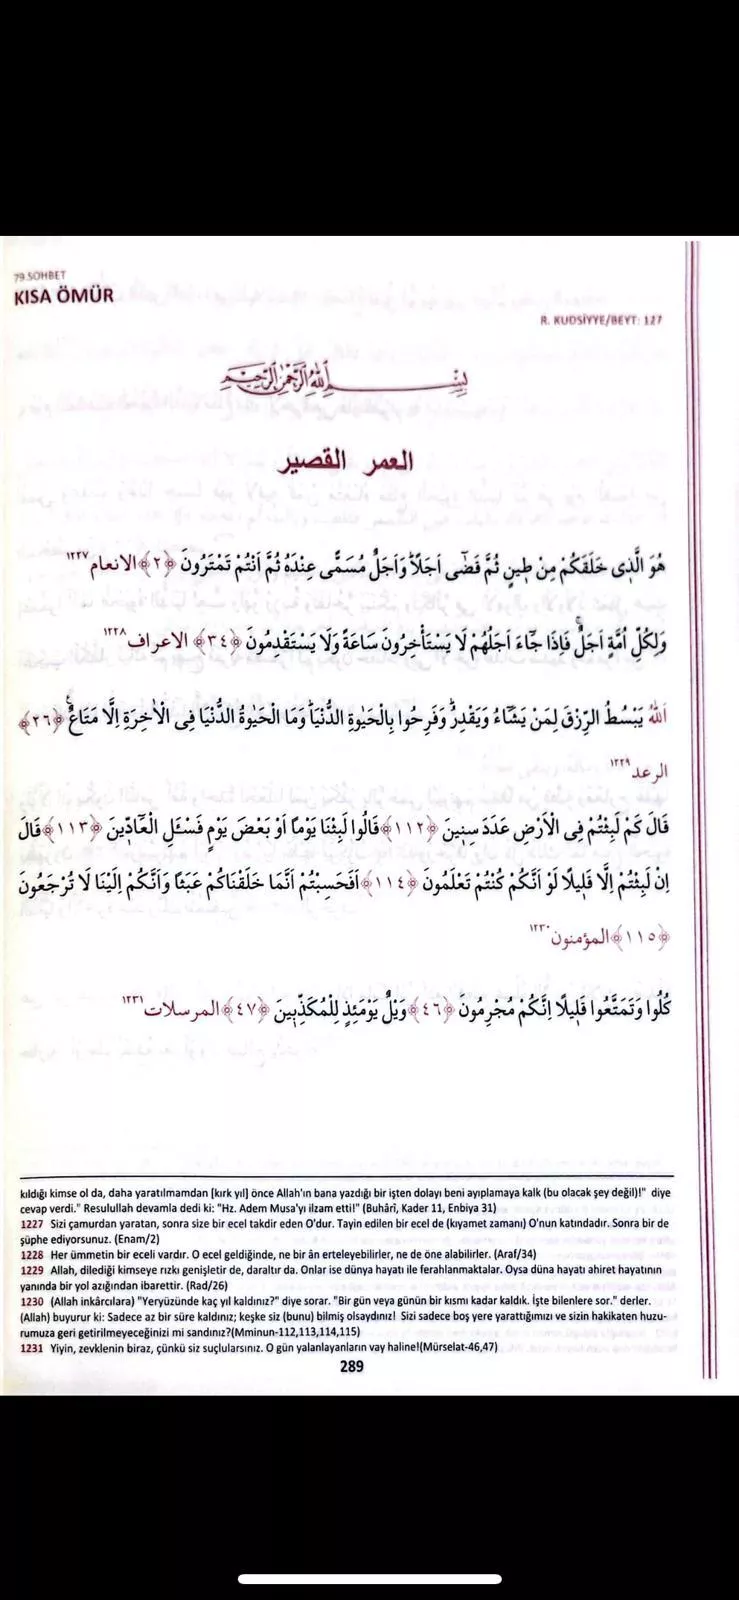 79.SOHBET
KISA ÖMÜR
R. KUDSİYYE/BEYT: 127
بِسْمِ اللّٰهِ الرَّحْمٰنِ الرَّحِيمِ
العمر القصير
هُوَ الَّذٖى خَلَقَكُمْ مِنْ طٖينٍ ثُمَّ قَضٰٓى اَجَلًاؕ وَاَجَلٌ مُسَمًّى عِنْدَهُ ثُمَّ اَنْتُمْ تَمْتَرُونَ ﴿٢﴾ الانعام ١٢٢٧
وَلِكُلِّ اُمَّةٍ اَجَلٌۚ فَاِذَا جَٓاءَ اَجَلُهُمْ لَا يَسْتَأْخِرُونَ سَاعَةً وَلَا يَسْتَقْدِمُونَ ﴿٣٤﴾ الاعراف ١٢٢٨
اَللّٰهُ يَبْسُطُ الرِّزْقَ لِمَنْ يَشَٓاءُ وَيَقْدِرُؕ وَفَرِحُوا بِالْحَيٰوةِ الدُّنْيَاؕ وَمَا الْحَيٰوةُ الدُّنْيَا فِى الْاٰخِرَةِ اِلَّا مَتَاعٌࣖ ﴿٢٦﴾
الرعد ١٢٢٩
قَالَ كَمْ لَبِثْتُمْ فِى الْاَرْضِ عَدَدَ سِنٖينَ ﴿١١٢﴾ قَالُوا لَبِثْنَا يَوْمًا اَوْ بَعْضَ يَوْمٍ فَسْـَٔلِ الْعَٓادّٖينَ ﴿١١٣﴾ قَالَ
اِنْ لَبِثْتُمْ اِلَّا قَلٖيلًا لَوْ اَنَّكُمْ كُنْتُمْ تَعْلَمُونَ ﴿١١٤﴾ اَفَحَسِبْتُمْ اَنَّمَا خَلَقْنَاكُمْ عَبَثًا وَاَنَّكُمْ اِلَيْنَا لَا تُرْجَعُونَ
﴿١١٥﴾ المؤمنون ١٢٣٠
كُلُوا وَتَمَتَّعُوا قَلٖيلًا اِنَّكُمْ مُجْرِمُونَ ﴿٤٦﴾ وَيْلٌ يَوْمَئِذٍ لِلْمُكَذِّبٖينَ ﴿٤٧﴾ المرسلات ١٢٣١
kıldığı kimse ol da, daha yaratılmamdan [kırk yıl] önce Allah'ın bana yazdığı bir işten dolayı beni ayıplamaya kalk (bu olacak şey değil)!" diye
cevap verdi." Resulullah devamla dedi ki: "Hz. Adem Musa'yı ilzam etti!" (Buhârî, Kader 11, Enbiya 31)
1227 Sizi çamurdan yaratan, sonra size bir ecel takdir eden O'dur. Tayin edilen bir ecel de (kıyamet zamanı) O'nun katındadır. Sonra bir de
şüphe ediyorsunuz. (Enam/2)
1228 Her ümmetin bir eceli vardır. O ecel geldiğinde, ne bir ân erteleyebilirler, ne de öne alabilirler. (Araf/34)
1229 Allah, dilediği kimseye rızkı genişletir de, daraltır da. Onlar ise dünya hayatı ile ferahlanmaktalar. Oysa düna hayatı ahiret hayatının
yanında bir yol azığından ibarettir. (Rad/26)
1230 (Allah inkârcılara) "Yeryüzünde kaç yıl kaldınız?" diye sorar. "Bir gün veya günün bir kısmı kadar kaldık. İşte bilenlere sor." derler.
(Allah) buyurur ki: Sadece az bir süre kaldınız; keşke siz (bunu) bilmiş olsaydınız! Sizi sadece boş yere yarattığımızı ve sizin hakikaten huzu-
rumuza geri getirilmeyeceğinizi mi sandınız?(Mminun-112,113,114,115)
1231 Yiyin, zevklenin biraz, çünkü siz suçlularsınız. O gün yalanlayanların vay haline!(Mürselat-46,47)
289